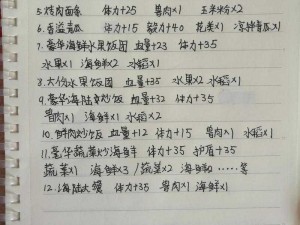 5.烤肉面条 体力+25 兽肉x1 玉米粉x2
6.香溢青瓜 体力+15 毅力+40 花类x1 凉钟青瓜x1
7.豪华海鲜水果饭团 血量+23 体力+35
水果x1 海鲜x2 水稻x1
8.大份水果饭团 血量+35 水果x2 水稻x1
9.豪华海陆煲炒饭 血量+32 体力+35
兽肉x1 海鲜x2 水稻x1
10.鲜肉炒饭 血量+12 体力+15 兽肉x1 水稻x1
11.豪华蔬菜炒海鲜 体力+35 护盾+35
蔬菜x1 海鲜x3/蔬菜x2 海鲜x2 ……等
12.海陆大餐 体力+35 兽肉x1 海鲜x1